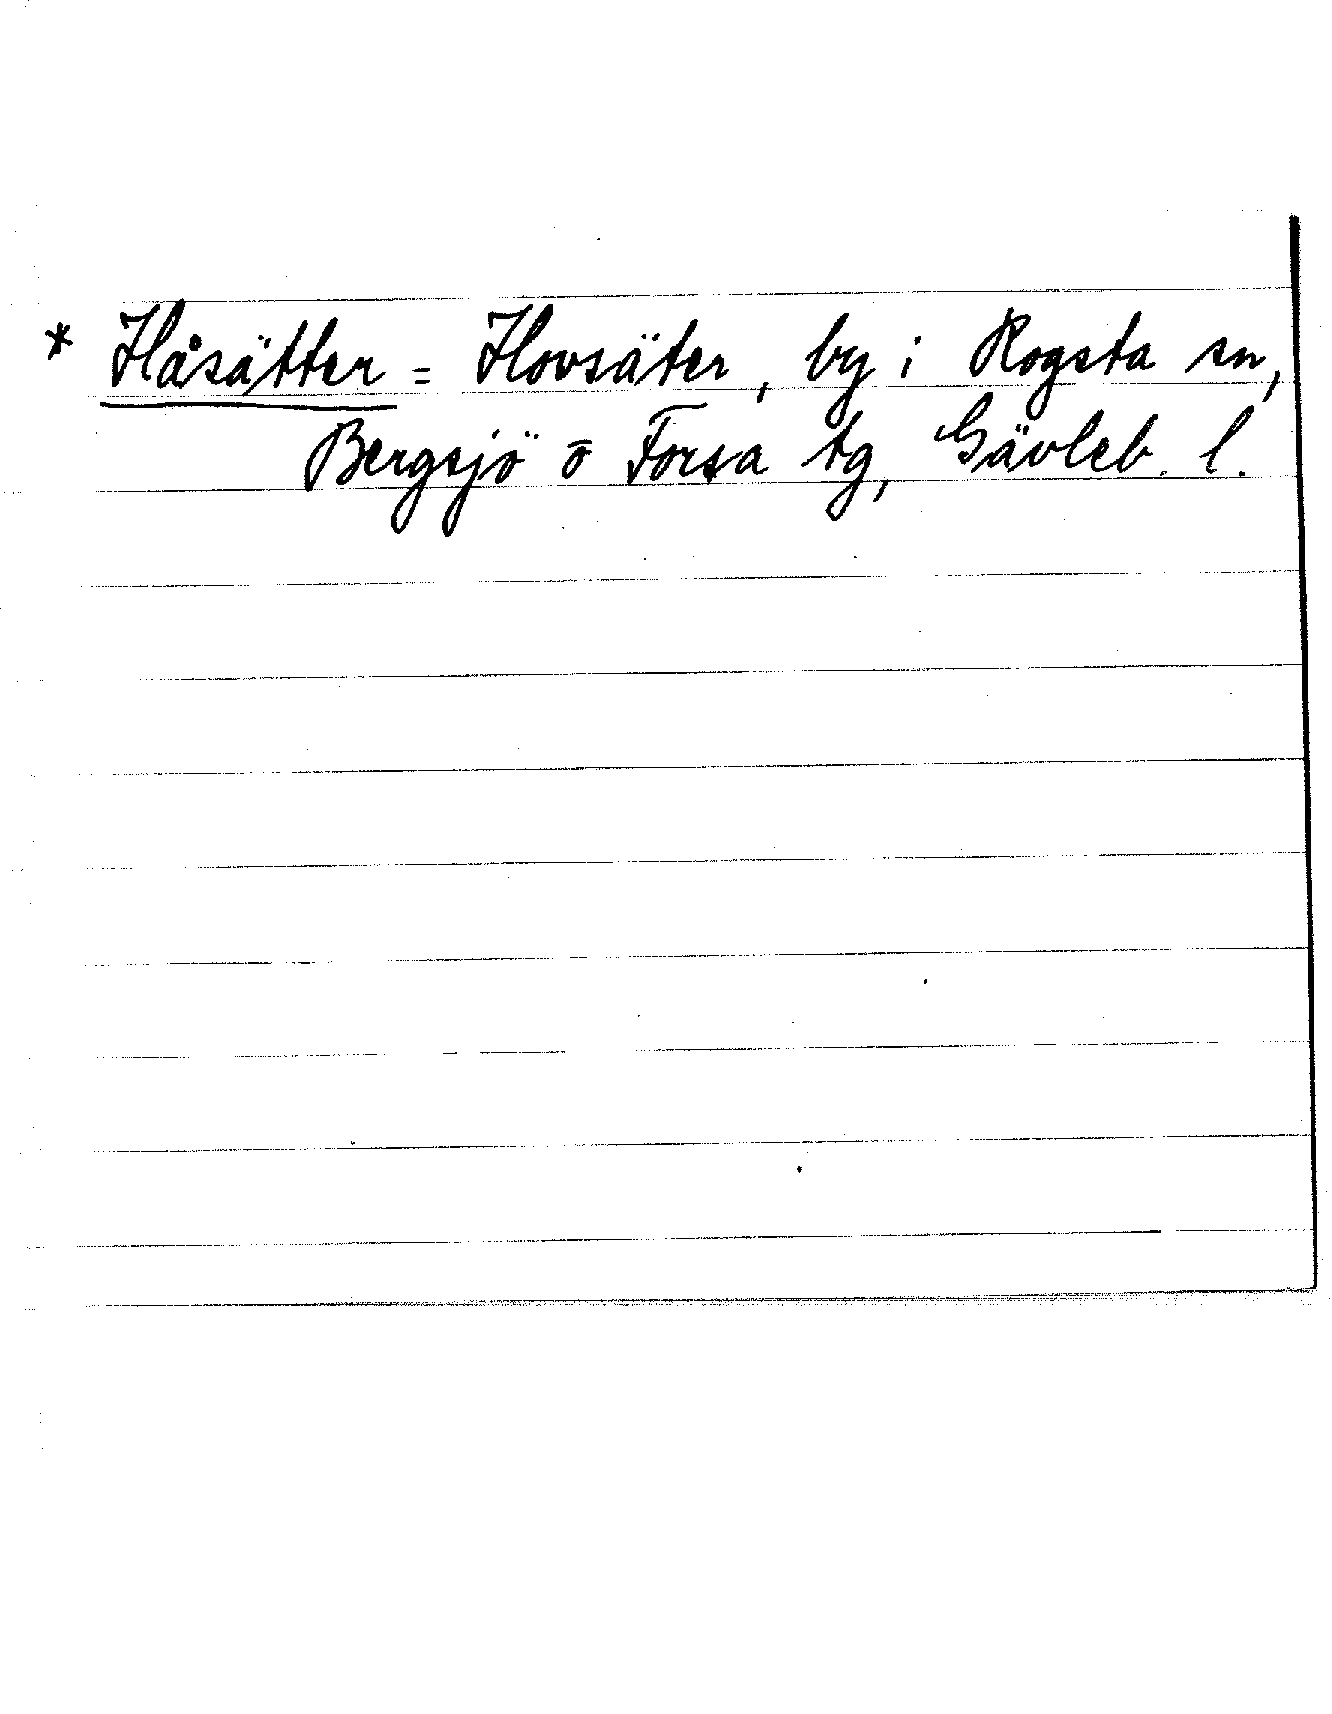 * Håsätter = Hovsäter, by i Rogsta sn,
Bergsjö o Forsa tg, Gävleb. l.